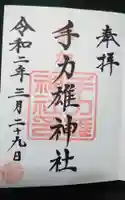 奉拝
手力雄神社
令和二年三月二十九日